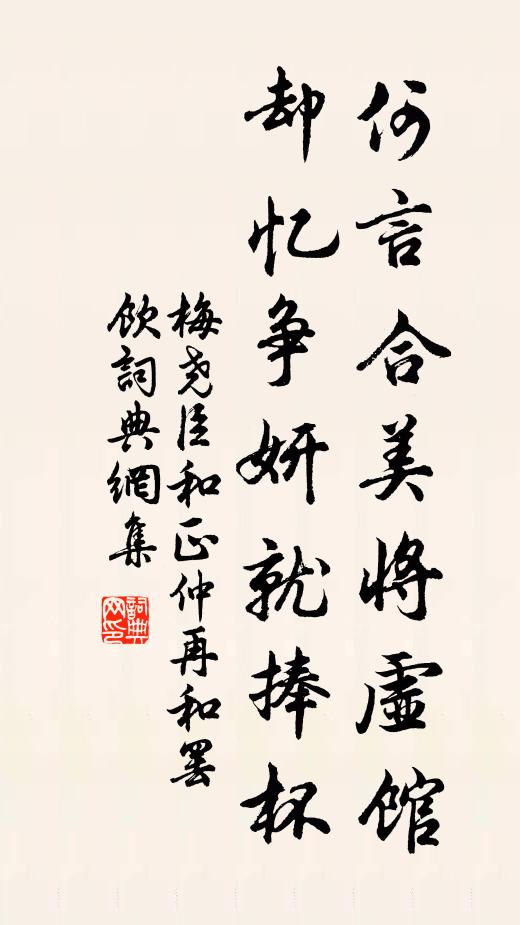 何言合美將虛館
却忆争妍就捧杯
梅尧臣和正仲再和罢
飲詞典網集
詞典网印